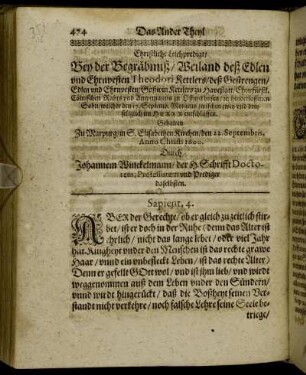 474 Das Ander Theyl
Christliche Leichpredigt/
Bey der Begräbniß/ Weiland deß Edlen
und Ehrnvesten Theodori Kettlers/ deß Gestrengen/
Edlen und Ehrnvesten/ Goßwin Kettlers zu
Cölnischen Rahts und
Sohn/ welcher den 19. Septemb.
seliglich im HERRN entschlaffen.
Gehalten
Zu Marpurg/ in S. Elisabethen Kirchen/ den 22. Septembris.
Anno Christi 1600.
Durch
Johannem Winckelmann/ der H. Schrifft Docto-
rem, Professorem und Prediger
daselbsten.
Sapient. 4.
ABER der Gerechte/ ob er gleich zu zeitlich stir-
bet/ ist er doch in der Ruhe/ denn das Alter ist
ehrlich/ nicht das lange lebet/ oder viel Jahr
hat. Klugheyt under den Menschen ist das rechte grauwe
Haar/ unnd ein unbefleckt Leben/ ist das rechte Alter/
Denn er gefellt GOtt wol/ und ist ihm lieb/ und wirdt
weggenommen auß dem Leben under den Sündern/
unnd wirdt hingerückt/ daß die Boßheyt seinen Ver-
standt nicht verkehre/ noch falsche Lehre seine Seele be-
triege/